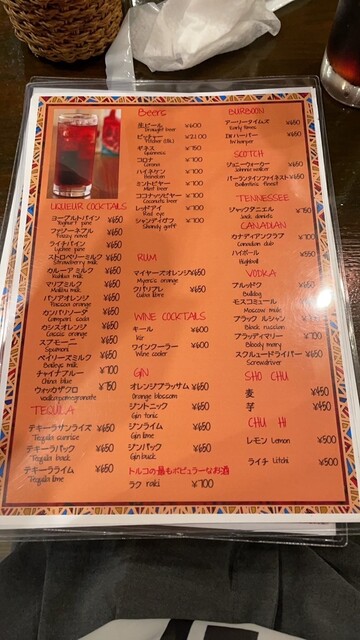 LIQUEUR COCKTAILS
ヨーグルトパイン ¥650
Yoghurt pine
ファジーネーブル ¥650
Fuzzy navel
ライチパイン ¥650
Lychee pine
ストロベリーミルク ¥650
Strawberry milk
カルーア ミルク ¥650
Kahlua milk
マリブミルク ¥650
Malibu milk
パソアオレンジ ¥650
Passoa orange
カンパリソーダ ¥650
Campari soda
カシスオレンジ ¥650
Cassis orange
スプモーニ ¥650
Spumoni
ベイリーズミルク ¥650
Baileys milk
チャイナブルー ¥100
China blue
ウォッカザクロ ¥750
vodkapomegranate
TEQUILA
テキーラサンライズ ¥650
Tequila sunrise
テキーラバック ¥650
Tequila back
テキーラライム ¥650
Tequila lime
Beers
生ビール ¥600
Draught beer
ピッチャー ¥2100
Pitcher
ギネス ¥750
Guinness
コロナ ¥700
Corona
ハイネケン ¥700
Heineken
ミントビヤー ¥700
Mint beer
ココナッツビヤー ¥700
Coconuts beer
レッドアイ ¥700
Red eye
シャンディガフ ¥700
Shandy gaff
RUM
マイヤーズオレンジ ¥650
Myers's orange
クバリブレ ¥650
Cuba libre
WINE COCKTAILS
キール ¥600
kir
ワインクーラー ¥600
Wine cooler
GIN
オレンジブラッサム ¥650
Orange blossom
ジントニック ¥650
Gin tonic
ジンライム ¥650
Gin lime
ジンバック ¥650
Gin buck
トルコの最もポピュラーなお酒
ラク raki ¥700
BURBOON
アーリータイムズ ¥650
Early times
IWハーパー ¥650
IW harper
SCOTCH
ジョニーウォーカー ¥650
Johnnie walker
バーランタインファイネスト ¥650
Ballentain's finest
TENNESSEE
ジャックダニエル ¥650
Jack daniels
CANADIAN
カナディアンクラブ ¥700
Canadian club
ハイボール ¥550
Highball
VODKA
ブルッドク ¥650
Bulldog
モスコミュール ¥650
Moscow mule
ブラック ルシャン ¥700
Black russian
ブラッディマリー ¥700
Bloody mary
スクリュードライバー ¥650
Screwdriver
SHO CHU
麦 ¥450
芋 ¥450
CHU HI
レモン Lemon ¥500
ライチ Litchi ¥500